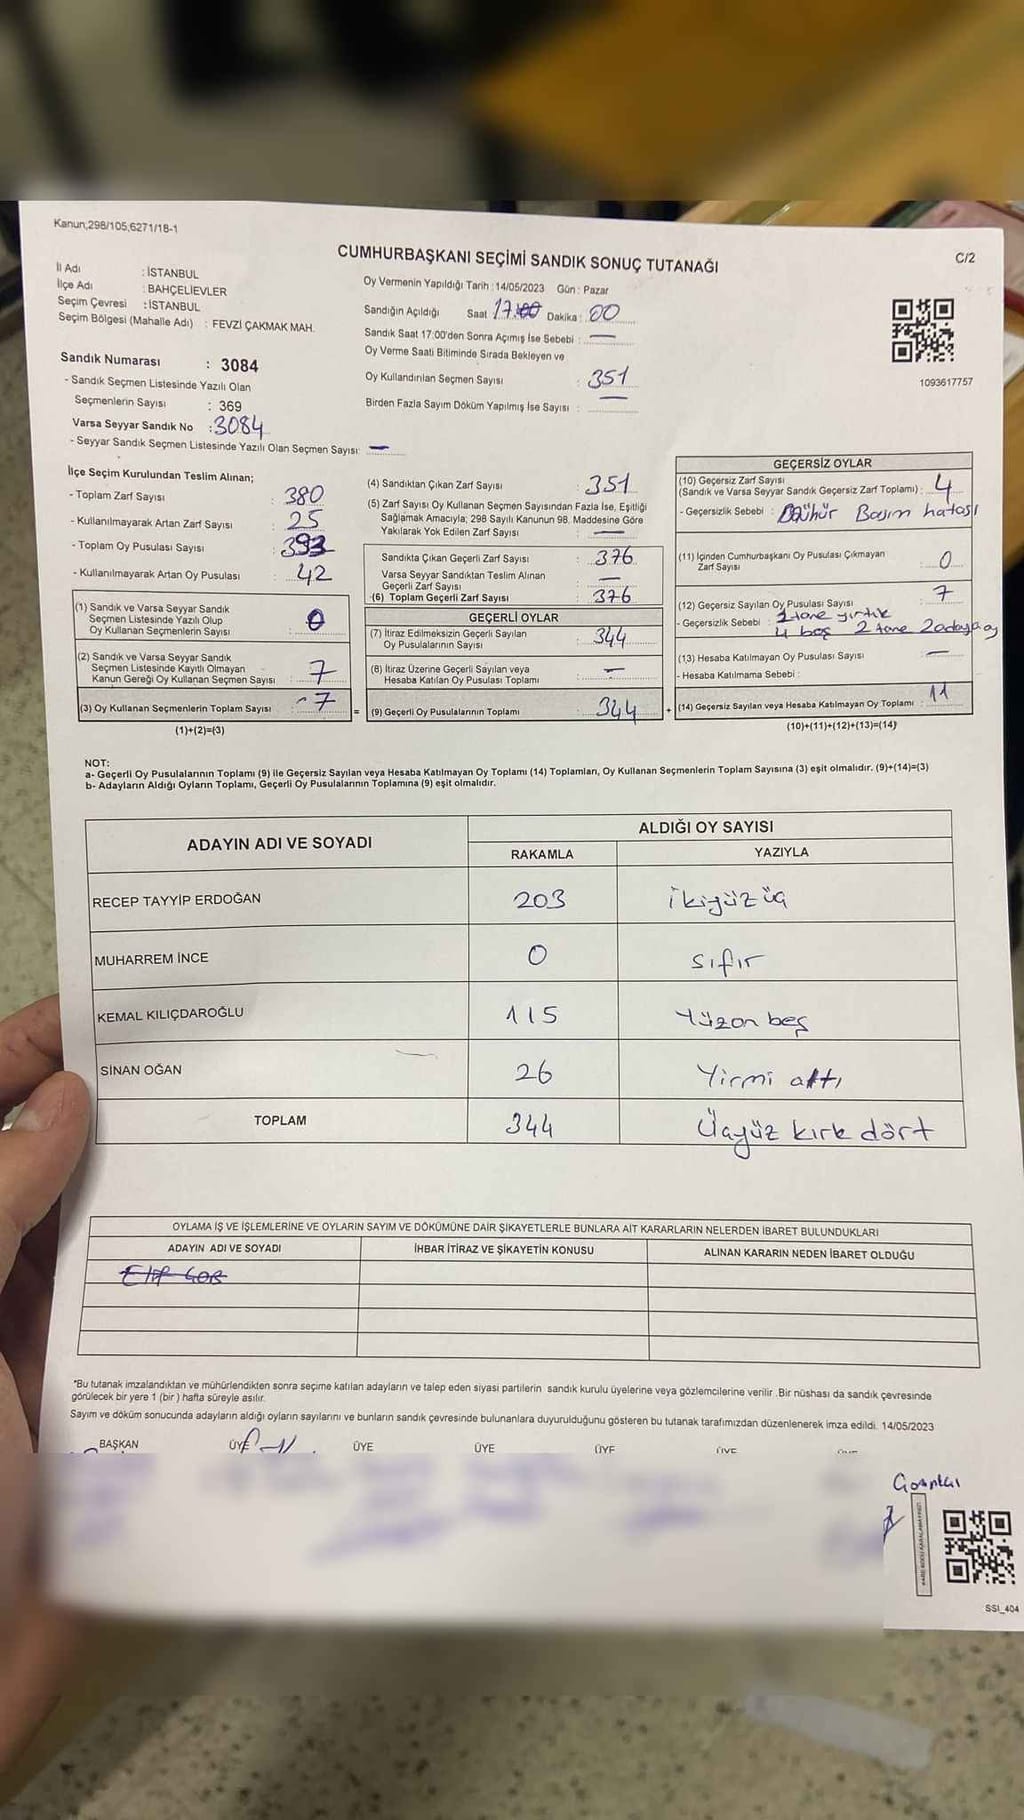 Kanun,298/105,6271/18-1
CUMHURBAŞKANI SEÇİMİ SANDIK SONUÇ TUTANAĞI
C/2
İl Adı : İSTANBUL
İlçe Adı : BAHÇELİEVLER
Seçim Çevresi : İSTANBUL
Seçim Bölgesi (Mahalle Adı) : FEVZİ ÇAKMAK MAH.
Sandık Numarası : 3084
- Sandık Seçmen Listesinde Yazılı Olan
Seçmenlerin Sayısı : 369
Varsa Seyyar Sandık No : 3084
- Seyyar Sandık Seçmen Listesinde Yazılı Olan Seçmen Sayısı: —
Oy Vermenin Yapıldığı Tarih : 14/05/2023 Gün : Pazar
Sandığın Açıldığı Saat 17:00 Dakika : 00
Sandık Saat 17:00'den Sonra Açımış İse Sebebi : —
Oy Verme Saati Bitiminde Sırada Bekleyen ve
Oy Kullandırılan Seçmen Sayısı : 351
Birden Fazla Sayım Döküm Yapılmış İse Sayısı : —
1093617757
İlçe Seçim Kurulundan Teslim Alınan;
- Toplam Zarf Sayısı : 380
- Kullanılmayarak Artan Zarf Sayısı : 25
- Toplam Oy Pusulası Sayısı : 393
- Kullanılmayarak Artan Oy Pusulası : 42
(1) Sandık ve Varsa Seyyar Sandık
Seçmen Listesinde Yazılı Olup
Oy Kullanan Seçmenlerin Sayısı : 0
(2) Sandık ve Varsa Seyyar Sandık
Seçmen Listesinde Kayıtlı Olmayan
Kanun Gereği Oy Kullanan Seçmen Sayısı : 7
(3) Oy Kullanan Seçmenlerin Toplam Sayısı : 7
(1)+(2)=(3)
(4) Sandıktan Çıkan Zarf Sayısı : 351
(5) Zarf Sayısı Oy Kullanan Seçmen Sayısından Fazla İse, Eşitliği
Sağlamak Amacıyla; 298 Sayılı Kanunun 98. Maddesine Göre
Yakılarak Yok Edilen Zarf Sayısı : —
Sandıkta Çıkan Geçerli Zarf Sayısı : 376
Varsa Seyyar Sandıktan Teslim Alınan
Geçerli Zarf Sayısı : —
(6) Toplam Geçerli Zarf Sayısı : 376
GEÇERLİ OYLAR
(7) İtiraz Edilmeksizin Geçerli Sayılan
Oy Pusulalarının Sayısı : 344
(8) İtiraz Üzerine Geçerli Sayılan veya
Hesaba Katılan Oy Pusulası Toplamı : —
= (9) Geçerli Oy Pusulalarının Toplamı : 344 +
GEÇERSİZ OYLAR
(10) Geçersiz Zarf Sayısı
(Sandık ve Varsa Seyyar Sandık Geçersiz Zarf Toplamı) : 4
- Geçersizlik Sebebi : Mühür Basım hatası
(11) İçinden Cumhurbaşkanı Oy Pusulası Çıkmayan
Zarf Sayısı : 0
(12) Geçersiz Sayılan Oy Pusulası Sayısı : 7
- Geçersizlik Sebebi : 1 tane yırtık
4 boş 2 tane 2 adaya oy
(13) Hesaba Katılmayan Oy Pusulası Sayısı : —
- Hesaba Katılmama Sebebi :
(14) Geçersiz Sayılan veya Hesaba Katılmayan Oy Toplamı : 11
(10)+(11)+(12)+(13)=(14)
NOT:
a- Geçerli Oy Pusulalarının Toplamı (9) ile Geçersiz Sayılan veya Hesaba Katılmayan Oy Toplamı (14) Toplamları, Oy Kullanan Seçmenlerin Toplam Sayısına (3) eşit olmalıdır. (9)+(14)=(3)
b- Adayların Aldığı Oyların Toplamı, Geçerli Oy Pusulalarının Toplamına (9) eşit olmalıdır.
ADAYIN ADI VE SOYADI
ALDIĞI OY SAYISI
RAKAMLA YAZIYLA
RECEP TAYYİP ERDOĞAN 203 ikiyüz üç
MUHARREM İNCE 0 sıfır
KEMAL KILIÇDAROĞLU 115 Yüzon beş
SİNAN OĞAN 26 Yirmi altı
TOPLAM 344 Üçyüz kırk dört
OYLAMA İŞ VE İŞLEMLERİNE VE OYLARIN SAYIM VE DÖKÜMÜNE DAİR ŞİKAYETLERLE BUNLARA AİT KARARLARIN NELERDEN İBARET BULUNDUKLARI
ADAYIN ADI VE SOYADI İHBAR İTİRAZ VE ŞİKAYETİN KONUSU ALINAN KARARIN NEDEN İBARET OLDUĞU
*Bu tutanak imzalandıktan ve mühürlendikten sonra seçime katılan adayların ve talep eden siyasi partilerin sandık kurulu üyelerine veya gözlemcilerine verilir .Bir nüshası da sandık çevresinde
görülecek bir yere 1 (bir ) hafta süreyle asılır.
Sayım ve döküm sonucunda adayların aldığı oyların sayılarını ve bunların sandık çevresinde bulunanlara duyurulduğunu gösteren bu tutanak tarafımızdan düzenlenerek imza edildi. 14/05/2023
BAŞKAN ÜYE ÜYE ÜYE ÜYE ÜYE
SSI_404